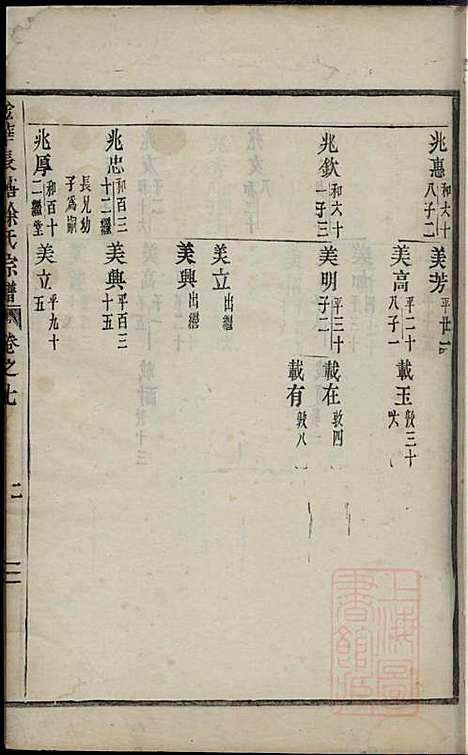 兆惠 和六十八子二
美芳 平廿一
美高 平二十八子一
載玉 敦三十六
兆欽 和六十一子三
美明 平三十子二
載在 敦四十
載有 敦八
美立 出繼
美興 出繼
兆忠 和百三十二繼
長兄幼子為嗣
美興 平百三十五
兆厚 和百十二繼堂
美立 平九十五
徐氏宗譜 卷之七
上海圖書館印